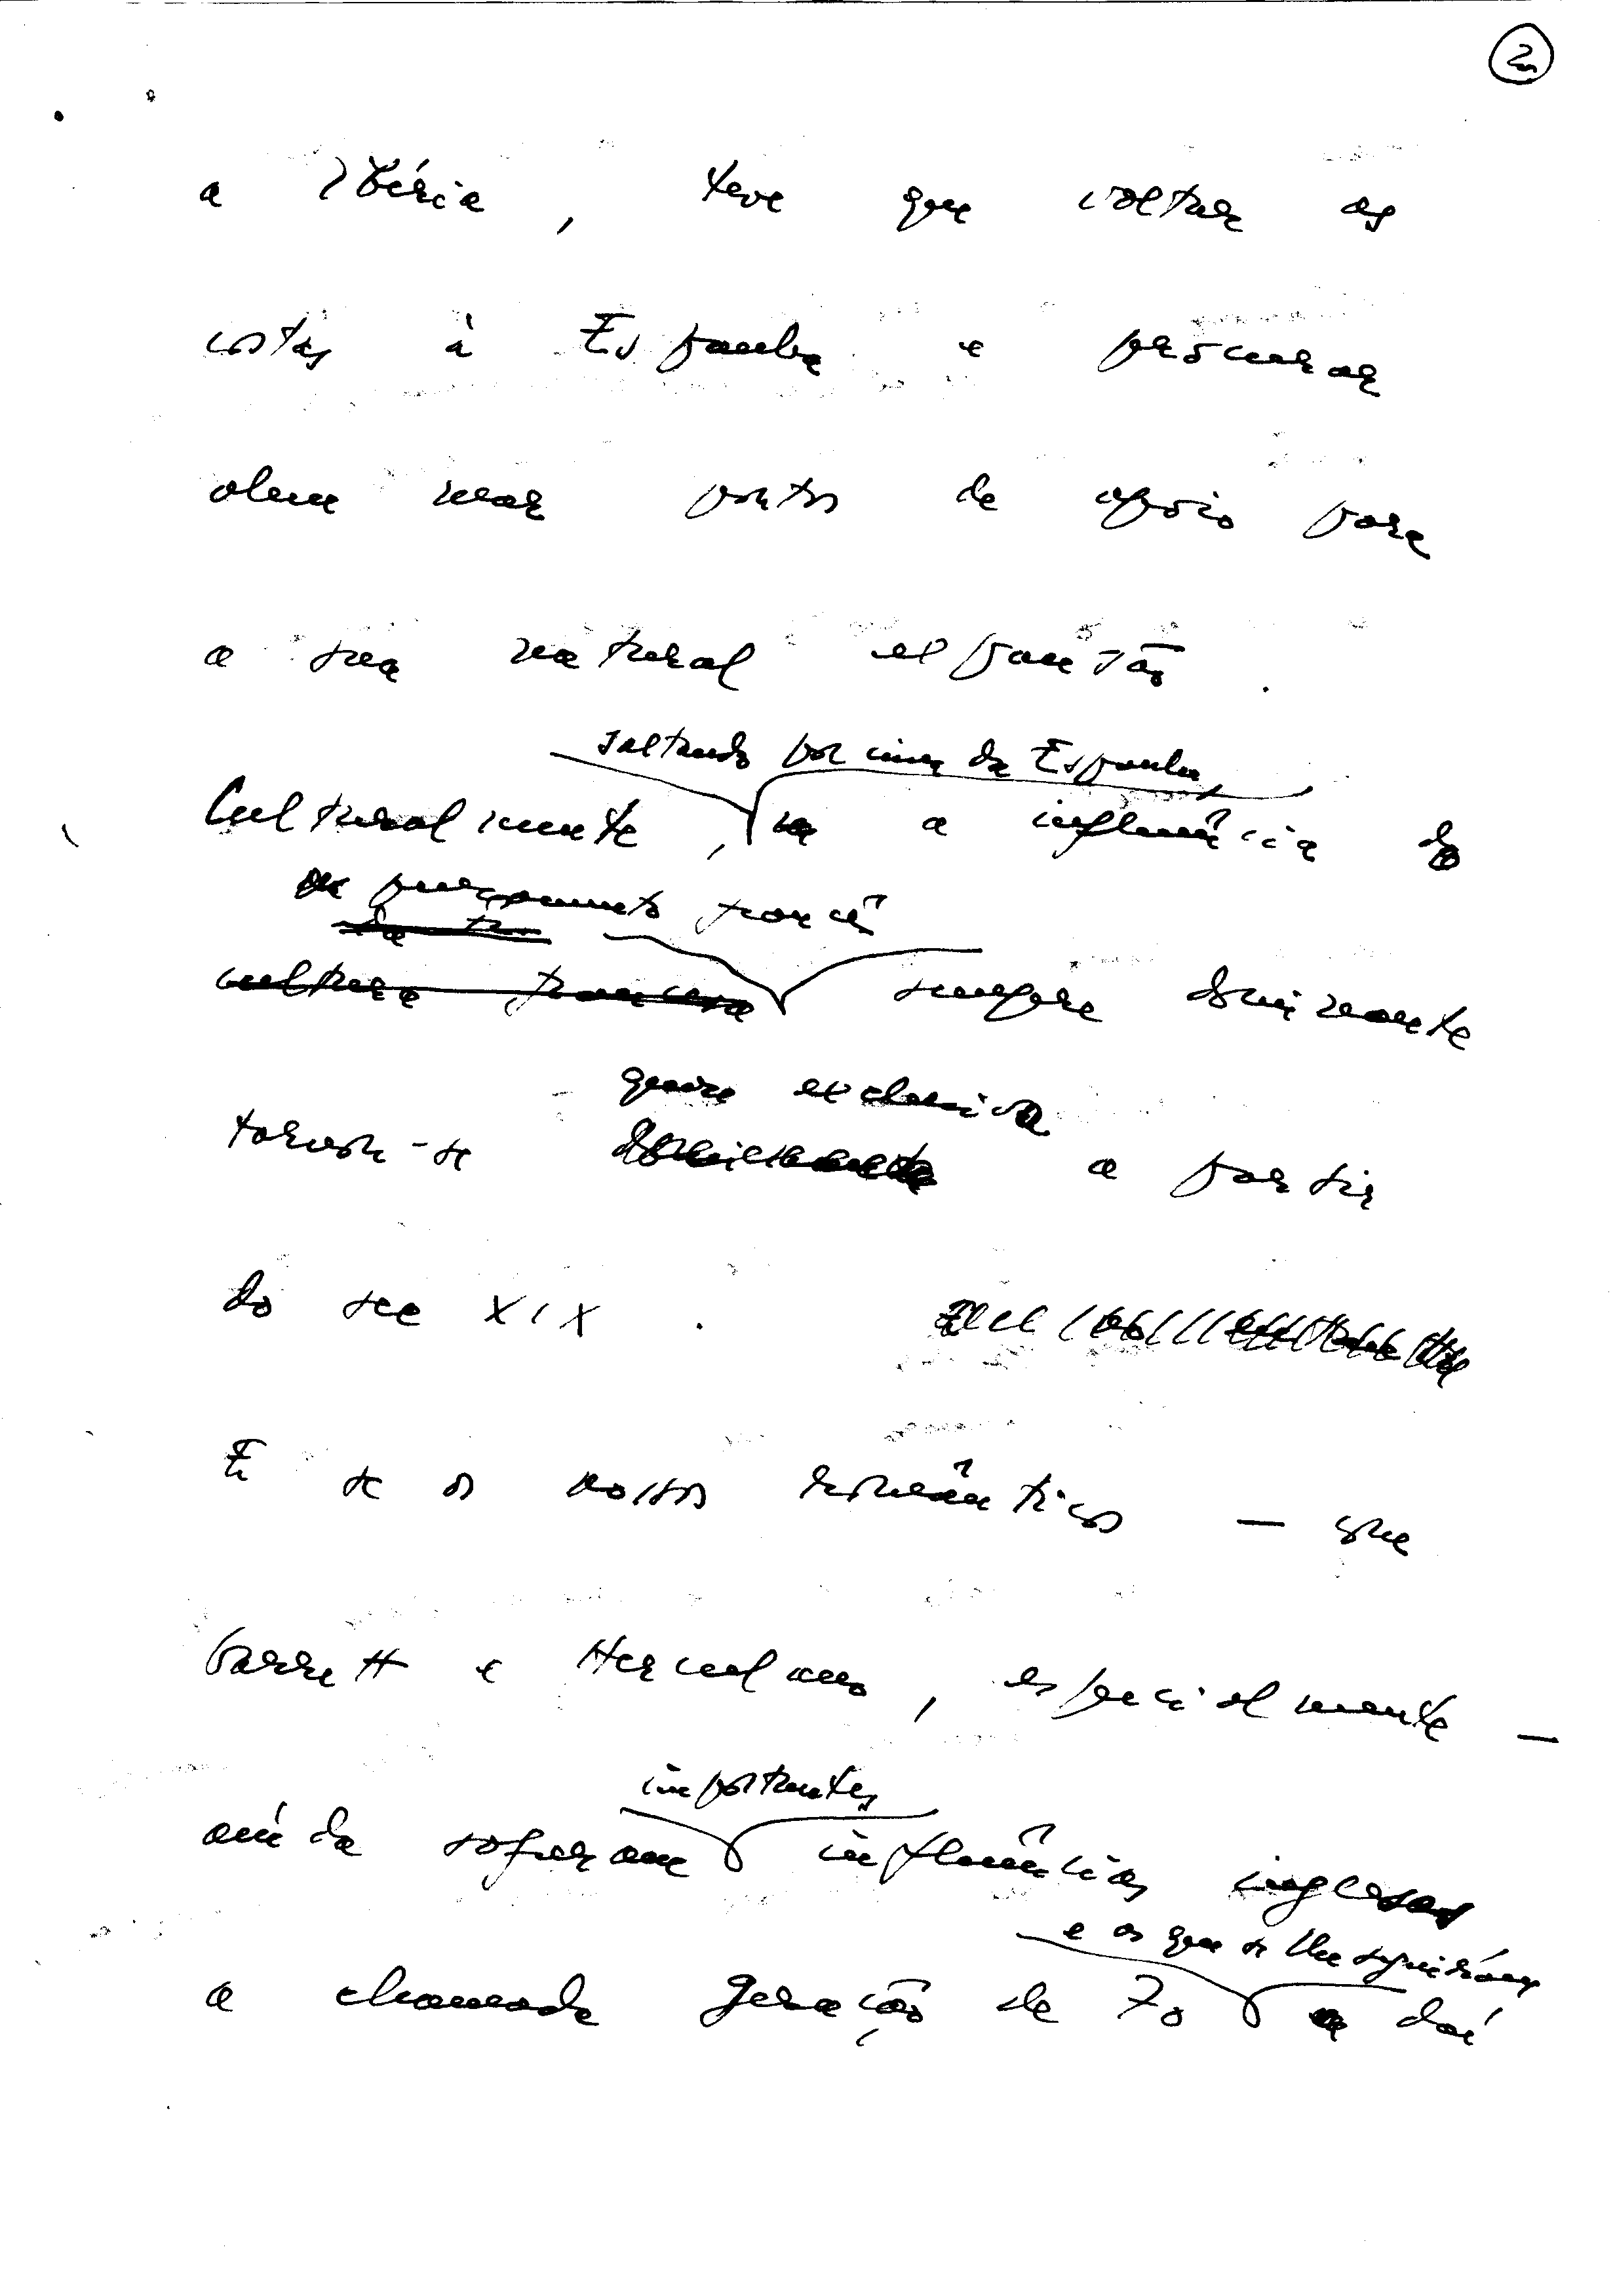 2
a Ibéria, teve que voltar as
costas à Espanha e procurar
alem mar pontos de apoio para
a sua natural expansão.
saltando por cima da Espanha,
Culturalmente, a influência do
pensamento francês
da
cultura francesa sempre dominante
quase exclusiva
tornou-se dominante a partir
do sec XIX.
E se os nossos românticos — com
Garrett e Herculano, especialmente —
importantes
ainda sofreram influências inglesas
e os que se lhe seguiram
a chamada geração de 70 daí